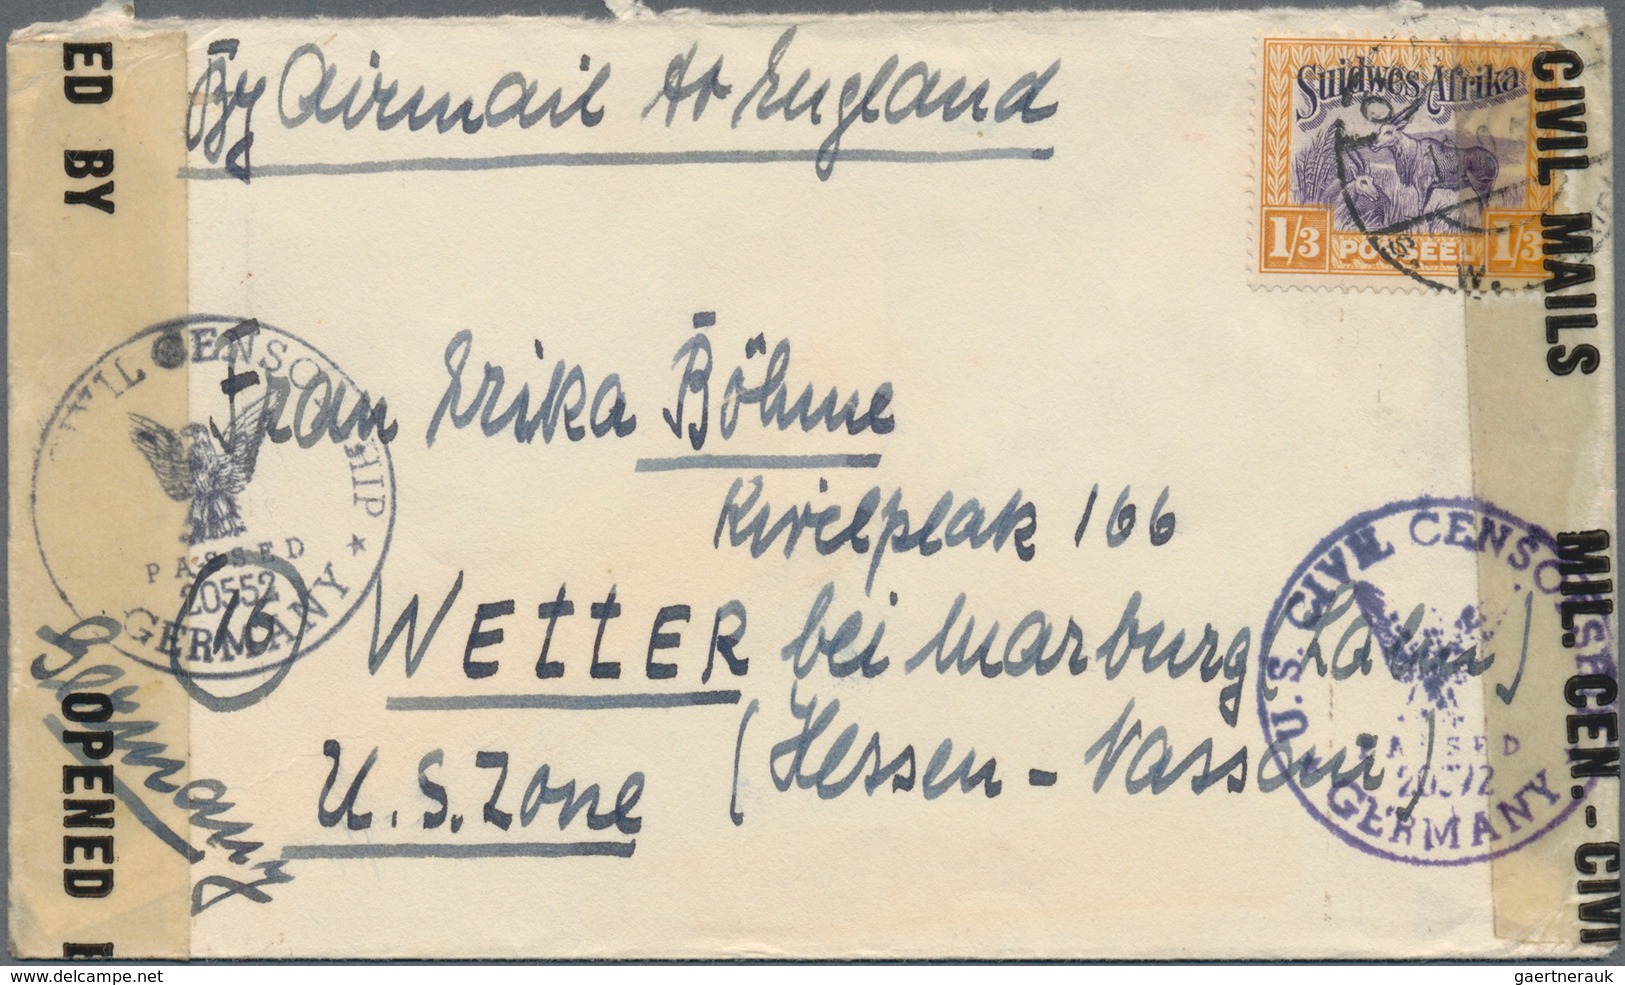 By Airmail to England
Suidwes-Afrika
1/3 POSSEEL 1/3
S. W.
CIVIL MAILS
MIL. CEN.- CIVI
ED BY
OPENED
CIVIL CENSORSHIP
PASSED
20552
GERMANY
16
Germany
Frau Erika Böhme
166
WEttER bei Marburg (Lahn)
U.S. Zone (Hessen-Nassau)
U.S. CIVIL CENSORSHIP
PASSED
GERMANY
www.delcampe.net
gaertnerauk